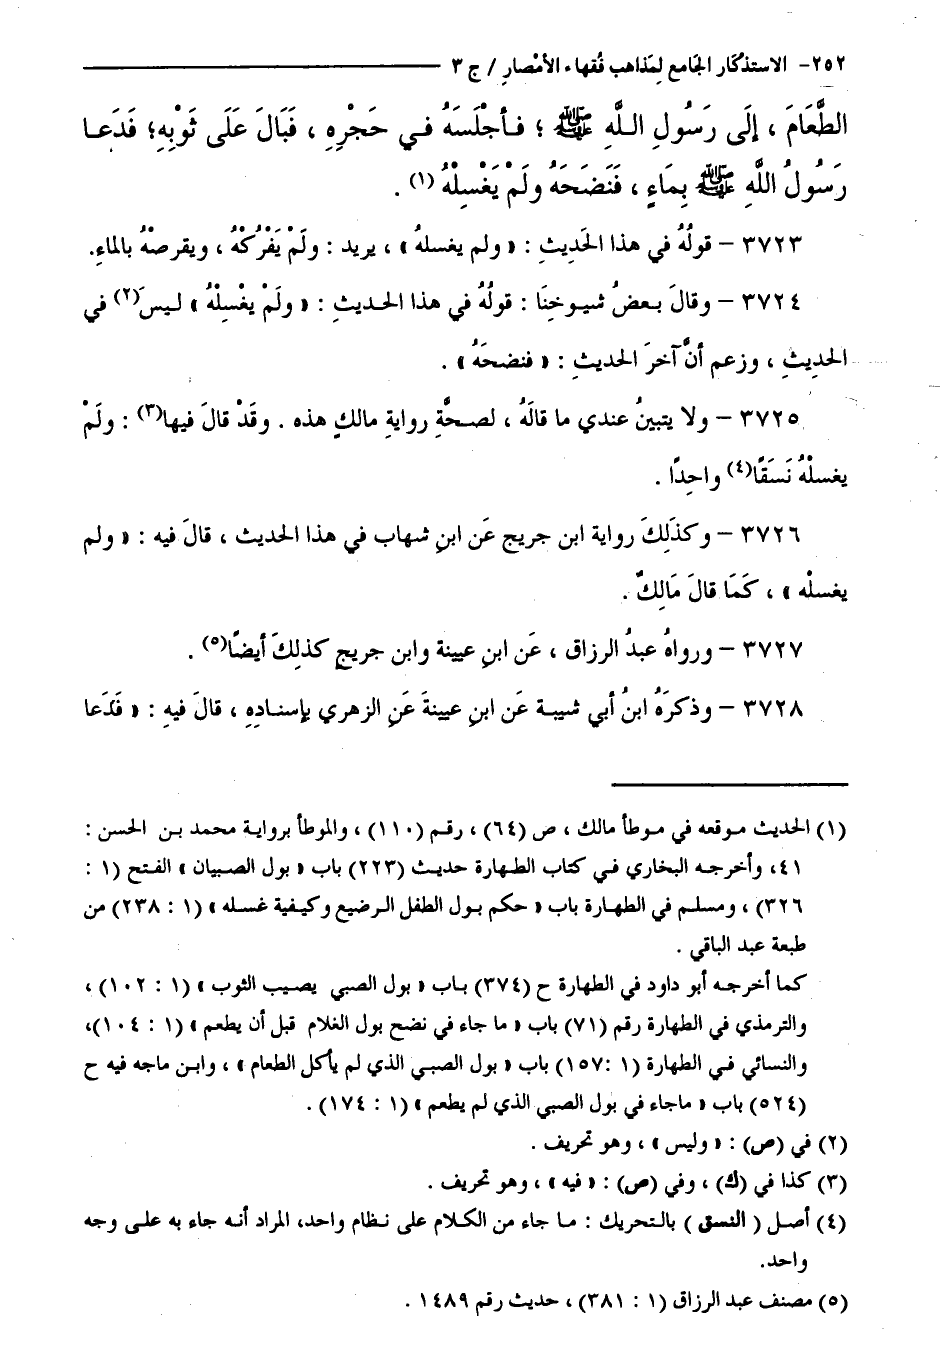 ٢٥٢- الاستذكار الجامع لمذاهب فقهاء الأمصار / ج ٣
الطَّعَامَ ، إلَى رَسُولِ اللَّهِ ﷺ ؛ فَأجْلَسَهُ في حَجْرِهِ ، فَبَالَ عَلَى ثَوْبِهِ؛ فَدَعا
رَسُولُ اللَّهِ ﷺ بِمَاءٍ ، فَنَضَحَهُ ولَمْ يَغْسِلْهُ (١) .
٣٧٢٣ – قولُهُ في هذا الحَديثِ : « ولم يغسلهُ » ، يريد : ولَمْ يَفْرُكْهُ ، ويقرصْهُ بالماءِ.
٣٧٢٤ – وقالَ بعضُ شيوخنَا : قولُهُ في هذا الحديثِ : « ولَمْ يغْسِلْهُ » ليسَ(٢) في
الحديثِ ، وزعم أنَّ آخرَ الحديثِ : « فنضحَهُ » .
٣٧٢٥ – ولا يتبينُ عندي ما قالَهُ ، لصحَّةِ روايةِ مالكٍ هذه . وقَدْ قالَ فيها(٣) : ولَمْ
يغسلْهُ نَسَقًا(٤) واحِدًا .
٣٧٢٦ – وكذَلِكَ رواية ابن جريج عَن ابنِ شهاب في هذا الحديث ، قالَ فيه : « ولم
يغسلْه » ، كَمَا قالَ مَالِكٌ .
٣٧٢٧ – ورواهُ عبدُ الرزاق ، عَن ابنِ عيينة وابن جريجٍ كذلِكَ أيضًا(٥) .
٣٧٢٨ – وذكرَهُ ابنُ أبي شيبة عَن ابنِ عيينةَ عَنِ الزهري بإسنادِهِ ، قالَ فيهِ : « فَدَعا
(١) الحديث موقعه في موطأ مالك ، ص (٦٤) ، رقم (١١٠) ، والموطأ برواية محمد بن الحسن :
٤١، وأخرجه البخاري في كتاب الطهارة حديث (٢٢٣) باب « بول الصبيان » الفتح (١ :
٣٢٦) ، ومسلم في الطهارة باب « حكم بول الطفل الرضيع وكيفية غسله » (١ : ٢٣٨) من
طبعة عبد الباقي .
كما أخرجه أبو داود في الطهارة ح (٣٧٤) باب « بول الصبي يصيب الثوب » (١ : ١٠٢) ،
والترمذي في الطهارة رقم (٧١) باب « ما جاء في نضح بول الغلام قبل أن يطعم » (١ : ١٠٤)،
والنسائي في الطهارة (١ :١٥٧) باب « بول الصبي الذي لم يأكل الطعام » ، وابن ماجه فيه ح
(٥٢٤) باب « ماجاء في بول الصبي الذي لم يطعم » (١ : ١٧٤) .
(٢) في (ص) : « وليس » ، وهو تحريف .
(٣) كذا في (ك) ، وفي (ص) : « فيه » ، وهو تحريف .
(٤) أصل ( النسق ) بالتحريك : ما جاء من الكلام على نظام واحد، المراد أنه جاء به على وجه
واحد.
(٥) مصنف عبد الرزاق (١ : ٣٨١) ، حديث رقم ١٤٨٩ .